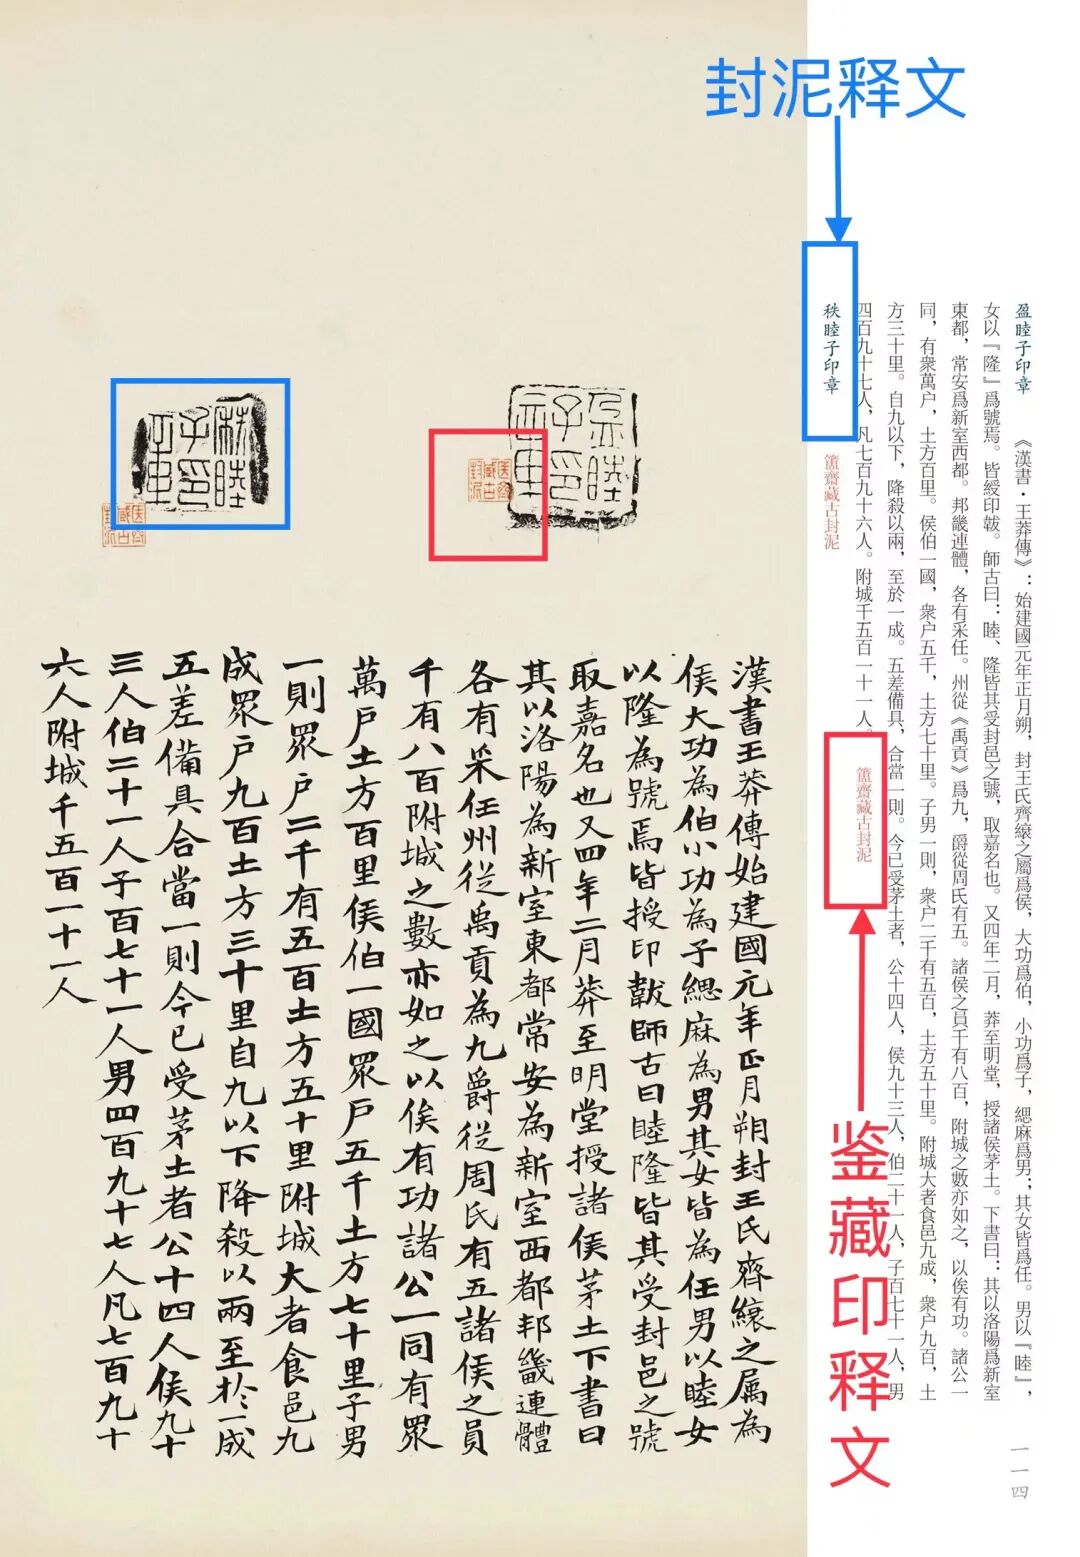 封泥释文
盈睦子印章
《漢書·王莽傳》：始建國元年正月朔，封王氏齊縗之屬爲侯，大功爲伯，小功爲子，緦麻爲男；其女皆爲任。男以『睦』，
女以『隆』爲號焉。皆綬印韍。師古曰：睦、隆皆其受封邑之號，取嘉名也。又四年二月，莽至明堂，授諸侯茅土。下書曰：其以洛陽爲新室
東都，常安爲新室西都。邦畿連體，各有采任。州從《禹貢》爲九，爵從周氏有五。諸侯之員千有八百，附城之數亦如之，以俟有功。諸公一
同，有衆萬户，土方百里。侯伯一國，衆户五千，土方七十里。子男一則，衆户二千有五百，土方五十里。附城大者食邑九成，衆户九百，土
方三十里。自九以下，降殺以兩，至於一成。五差備具，合當一則。今已受茅土者，公十四人，侯九十三人，伯二十一人，子百七十一人，男
四百九十七人，凡七百九十六人。附城千五百一十一人。
簠齋藏古封泥
秩睦子印章
簠齋藏古封泥
鉴藏印释文
一一四
漢書王莽傳始建國元年正月朔封王氏齊縗之属為
侯大功為伯小功為子緦麻為男其女皆為任男以睦女
以隆為號焉皆授印韍師古曰睦隆皆其受封邑之號
取嘉名也又四年二月莽至明堂授諸侯茅土下書曰
其以洛陽為新室東都常安為新室西都邦畿連體
各有采任州從禹貢為九爵從周氏有五諸侯之員
千有八百附城之數亦如之以俟有功諸公一同有眾
萬戶土方百里侯伯一國眾戶五千土方七十里子男
一則眾戶二千有五百土方五十里附城大者食邑九
成眾戶九百土方三十里自九以下降殺以兩至於一成
五差備具合當一則今已受茅土者公十四人侯九十
三人伯二十一人子百七十一人男四百九十七人凡七百九十
六人附城千五百一十一人